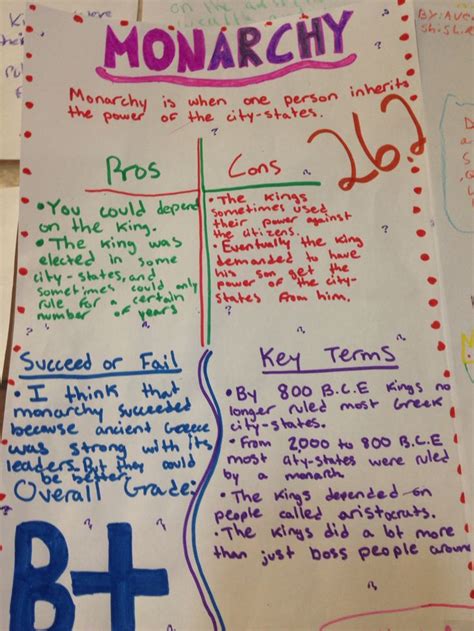 MONARCHY
Monarchy is when one person inherits
the power of the city-states.
26.2
Pros
• You could depend
on the King.
• The King was
elected in some
city-states, and
sometimes could only
rule for a certain
number of years
Cons
• The Kings
sometimes used
their power against
the citizens.
• Eventually the King
demanded to have
his son get the
power of the city-
states from him.
Succeed or Fail
• I think that
monarchy succeeded
because ancient Greece
was strong with its
leaders. But they could
be better.
Overall Grade:
B+
Key Terms
• By 800 B.C.E Kings no
longer ruled most Greek
city-states.
• From 2,000 to 800 B.C.E
most city-states were ruled
by a monarch
• The Kings depended on
people called aristocrats.
• The Kings did a lot more
than just boss people around